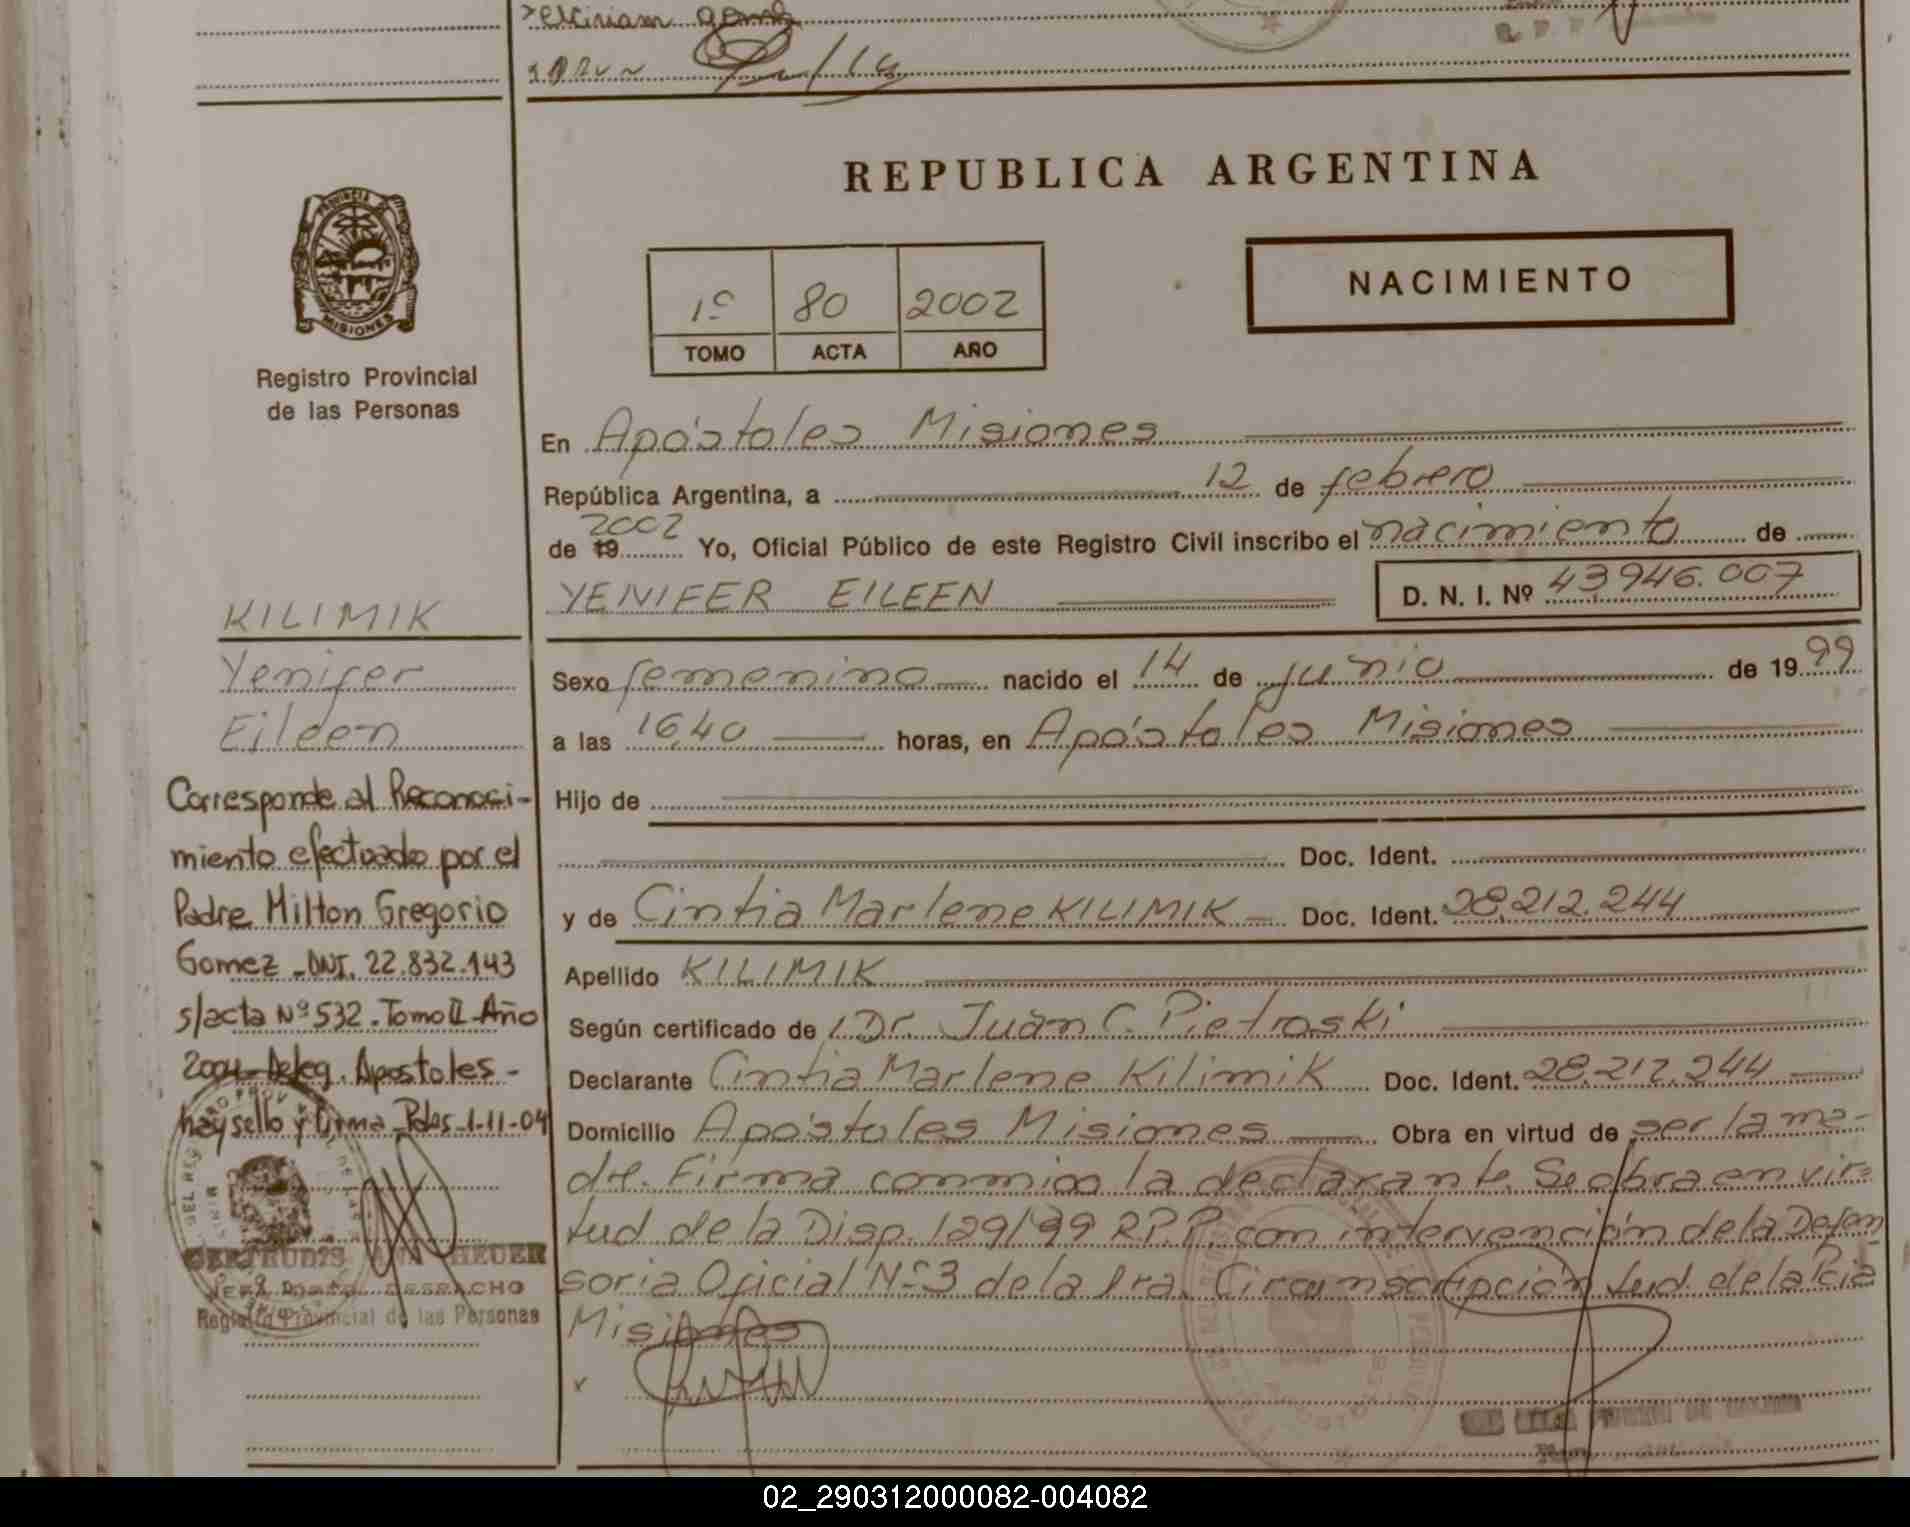 Miriam
REPUBLICA ARGENTINA
PROVINCIA DE
MISIONES
Registro Provincial
de las Personas
NACIMIENTO
1º 80 2002
TOMO ACTA AÑO
En Apóstoles Misiones
República Argentina, a 12 de febrero
de 19 2002 Yo, Oficial Público de este Registro Civil inscribo el nacimiento de
YENIFER EILEEN D. N. I. Nº 43946.007
KILIMIK
Yenifer
Eileen
Corresponde al Reconoci-
miento efectuado por el
Padre Milton Gregorio
Gomez - DNI. 22.832.143
s/acta Nº 532. Tomo II - Año
2004 - Deleg. Apostoles -
hay sello y firma - Pdas - 1-11-04
GERTRUDIS ANA HEUER
JEFE DESPACHO
Registro Provincial de las Personas
Sexo femenino nacido el 14 de junio de 1999
a las 16,40 horas, en Apóstoles Misiones
Hijo de
Doc. Ident.
y de Cintia Marlene KILIMIK Doc. Ident. 28.212.244
Apellido KILIMIK
Según certificado de Dr. Juan C. Pietroski
Declarante Cintia Marlene Kilimik Doc. Ident. 28.212.244
Domicilio Apóstoles Misiones Obra en virtud de ser la ma-
dre. Firma conmigo la declarante. Se obra en vir-
tud de la Disp. 129/99 R.P.P. con intervención de la Defen
soria Oficial Nº 3 de la 1ra. Circunscripción Jud. de la Pcia
Misiones
02_290312000082-004082